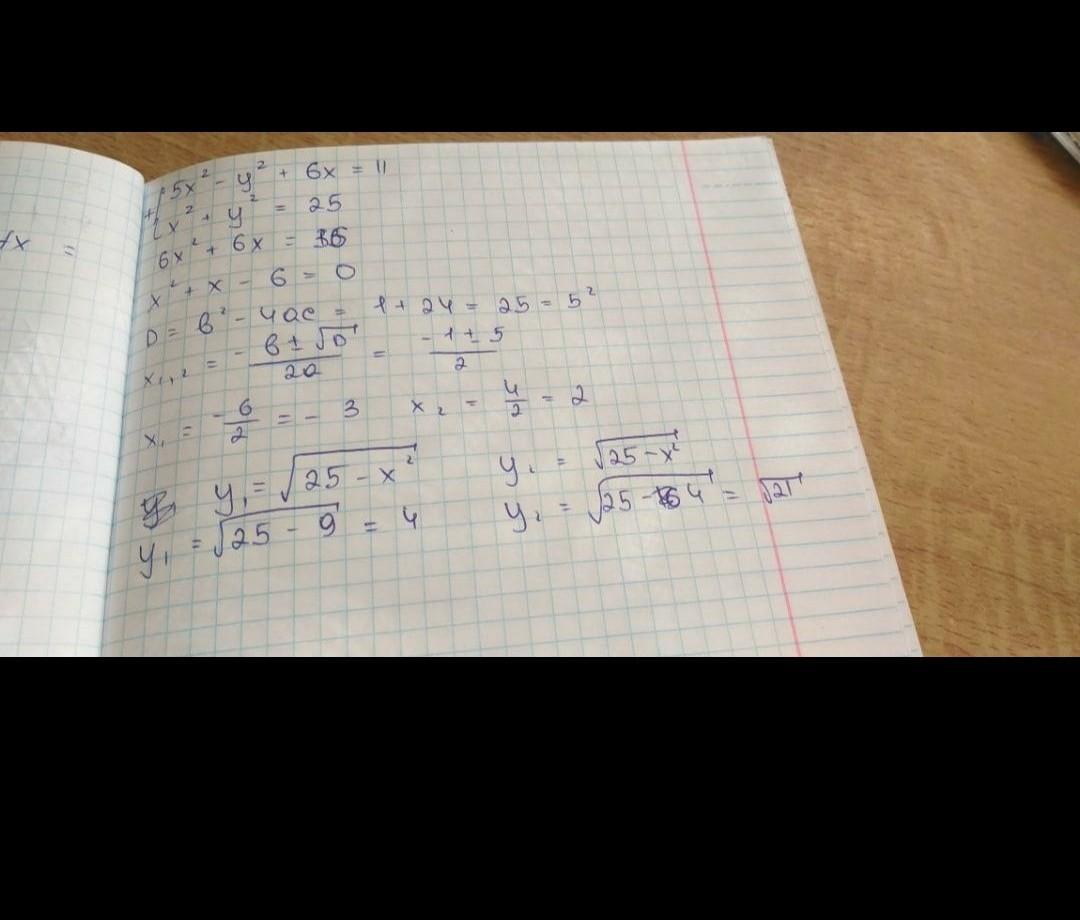 5x² - y² + 6x = 11
x² + y² = 25
6x² + 6x = 36
x² + x - 6 = 0
D = в² - 4ac = 1 + 24 = 25 = 5²
x₁,₂ = - в ± √D / 2a = -1 ± 5 / 2
x₁ = -6/2 = - 3 x₂ = 4/2 = 2
y₁ = √25 - x² y₂ = √25 - x²
y₁ = √25 - 9 = 4 y₂ = √25 - 4 = √21
x =